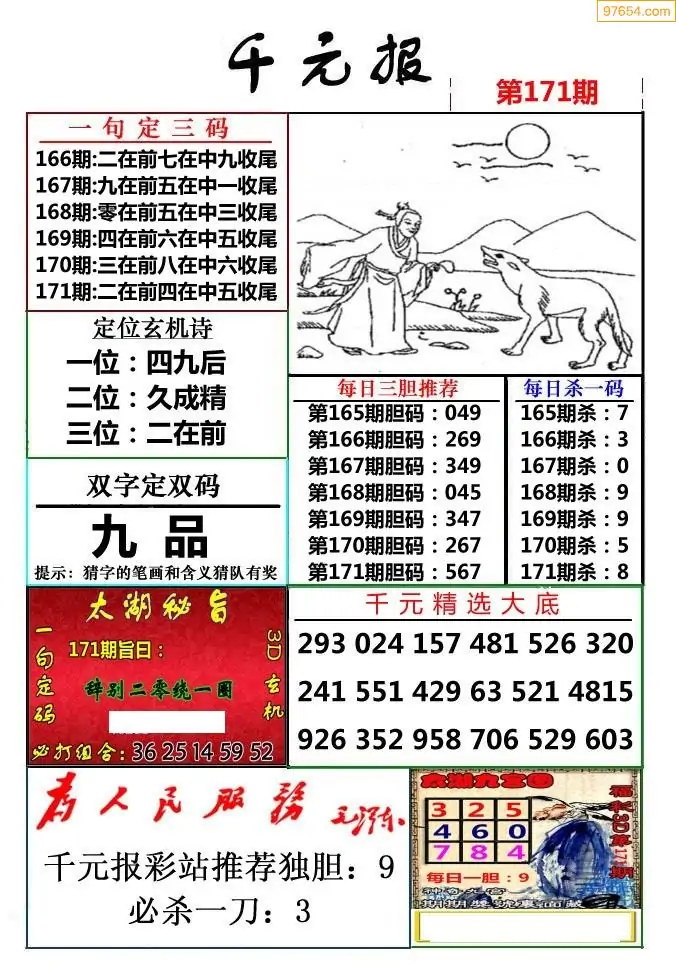 97654.com
千元报
第171期
一句定三码
166期:二在前七在中九收尾
167期:九在前五在中一收尾
168期:零在前五在中三收尾
169期:四在前六在中五收尾
170期:三在前八在中六收尾
171期:二在前四在中五收尾
定位玄机诗
一位：四九后
二位：久成精
三位：二在前
每日三胆推荐
第165期胆码：049
第166期胆码：269
第167期胆码：349
第168期胆码：045
第169期胆码：347
第170期胆码：267
第171期胆码：567
每日杀一码
165期杀：7
166期杀：3
167期杀：0
168期杀：9
169期杀：9
170期杀：5
171期杀：8
双字定双码
九 品
提示：猜字的笔画和含义猜队有奖
太湖秘旨
一句定码
3D玄机
171期旨曰：
辞别二零统一圈
必打组合：36 25 14 59 52
千元精选大底
293 024 157 481 526 320
241 551 429 63 521 4815
926 352 958 706 529 603
为人民服务
毛泽东
千元报彩站推荐独胆：9
必杀一刀：3
太湖九宫图
福利3D第171期
3 2 5
4 6 0
7 8 4
每日一胆：9
期期奬號裏面藏